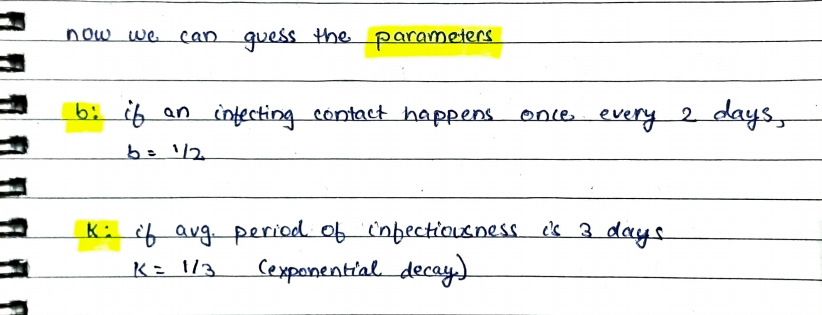 now we can guess the parameters
b: if an infecting contact happens once every 2 days,
b = 1/2
k: if avg. period of infectiousness is 3 days
k = 1/3 (exponential decay)